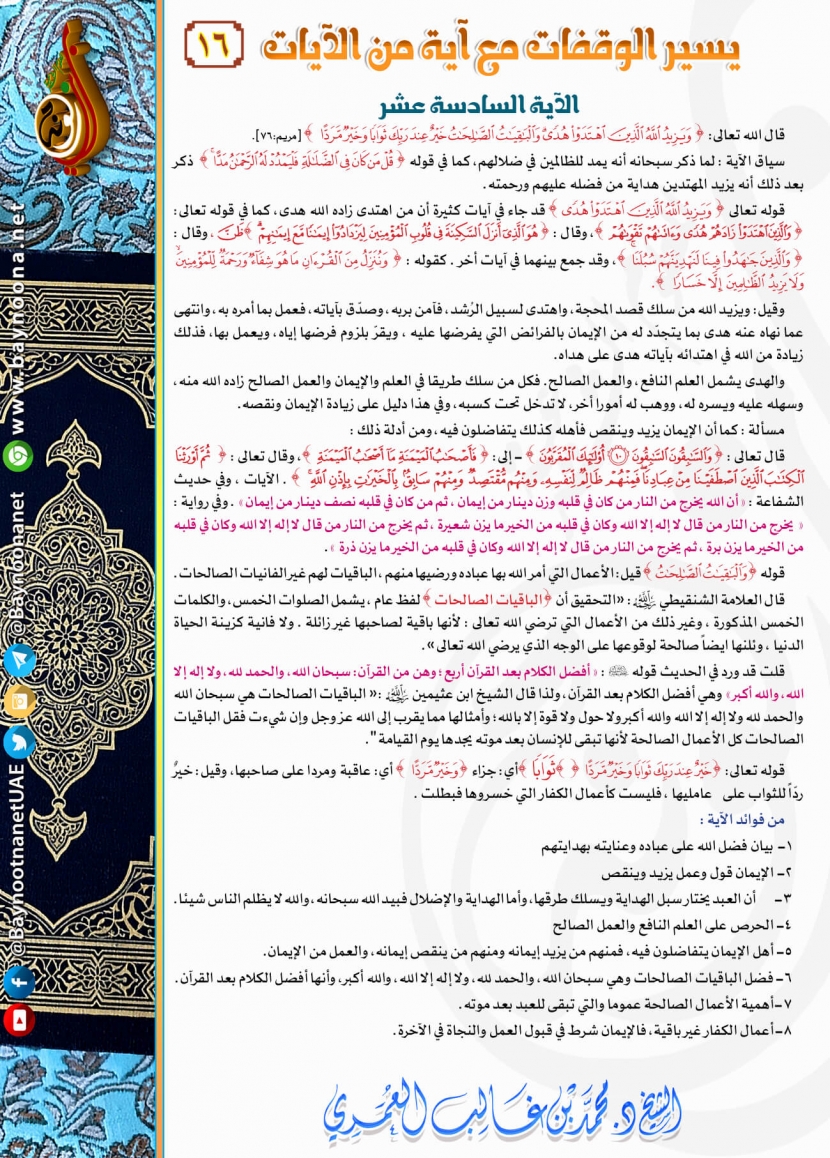 يسير الوقفات مع آية من الآيات
١٦
الآية السادسة عشر
قال الله تعالى: ﴿ وَيَزِيدُ اللَّهُ الَّذِينَ اهْتَدَوْا هُدًى وَالْبَاقِيَاتُ الصَّالِحَاتُ خَيْرٌ عِندَ رَبِّكَ ثَوَابًا وَخَيْرٌ مَّرَدًّا ﴾ [مريم:٧٦].
سياق الآية : لما ذكر سبحانه أنه يمد للظالمين في ضلالهم، كما في قوله ﴿ قُلْ مَن كَانَ فِي الضَّلَالَةِ فَلْيَمْدُدْ لَهُ الرَّحْمَنُ مَدًّا ﴾ ذكر
بعد ذلك أنه يزيد المهتدين هداية من فضله عليهم ورحمته.
قوله تعالى ﴿ وَيَزِيدُ اللَّهُ الَّذِينَ اهْتَدَوْا هُدًى ﴾ قد جاء في آيات كثيرة أن من اهتدى زاده الله هدى، كما في قوله تعالى:
﴿ وَالَّذِينَ اهْتَدَوْا زَادَهُمْ هُدًى وَآتَاهُمْ تَقْوَاهُمْ ﴾، وقال : ﴿ هُوَ الَّذِي أَنزَلَ السَّكِينَةَ فِي قُلُوبِ الْمُؤْمِنِينَ لِيَزْدَادُوا إِيمَانًا مَّعَ إِيمَانِهِمْ ﴾، وقال :
﴿ وَالَّذِينَ جَاهَدُوا فِينَا لَنَهْدِيَنَّهُمْ سُبُلَنَا ﴾، وقد جمع بينهما في آيات أخر . كقوله : ﴿ وَنُنَزِّلُ مِنَ الْقُرْآنِ مَا هُوَ شِفَاءٌ وَرَحْمَةٌ لِّلْمُؤْمِنِينَ
وَلَا يَزِيدُ الظَّالِمِينَ إِلَّا خَسَارًا ﴾.
وقيل: ويزيد الله من سلك قصد المحجة، واهتدى لسبيل الرُشد، فآمن بربه، وصدّق بآياته، فعمل بما أمره به، وانتهى
عما نهاه عنه هدى بما يتجدّد له من الإيمان بالفرائض التي يفرضها عليه ، ويقرّ بلزوم فرضها إياه، ويعمل بها، فذلك
زيادة من الله في اهتدائه بآياته هدى على هداه.
والهدى يشمل العلم النافع، والعمل الصالح. فكل من سلك طريقا في العلم والإيمان والعمل الصالح زاده الله منه،
وسهله عليه ويسره له، ووهب له أمورا أخر، لا تدخل تحت كسبه، وفي هذا دليل على زيادة الإيمان ونقصه.
مسألة : كما أن الإيمان يزيد وينقص فأهله كذلك يتفاضلون فيه، ومن أدلة ذلك :
قال تعالى: ﴿ وَالسَّابِقُونَ السَّابِقُونَ (١٠) أُولَئِكَ الْمُقَرَّبُونَ ﴾ - إلى: ﴿ فَأَصْحَابُ الْمَيْمَنَةِ مَا أَصْحَابُ الْمَيْمَنَةِ ﴾، وقال تعالى: ﴿ ثُمَّ أَوْرَثْنَا
الْكِتَابَ الَّذِينَ اصْطَفَيْنَا مِنْ عِبَادِنَا فَمِنْهُمْ ظَالِمٌ لِّنَفْسِهِ وَمِنْهُم مُّقْتَصِدٌ وَمِنْهُمْ سَابِقٌ بِالْخَيْرَاتِ بِإِذْنِ اللَّهِ ﴾ . الآيات ، وفي حديث
الشفاعة : «أن الله يخرج من النار من كان في قلبه وزن دينار من إيمان ، ثم من كان في قلبه نصف دينار من إيمان» . وفي رواية :
« يخرج من النار من قال لا إله إلا الله وكان في قلبه من الخير ما يزن شعيرة ، ثم يخرج من النار من قال لا إله إلا الله وكان في قلبه
من الخير ما يزن برة ، ثم يخرج من النار من قال لا إله إلا الله وكان في قلبه من الخير ما يزن ذرة » .
قوله ﴿ وَالْبَاقِيَاتُ الصَّالِحَاتُ ﴾ قيل: الأعمال التي أمر الله بها عباده ورضيها منهم ، الباقيات لهم غير الفانيات الصالحات.
قال العلامة الشنقيطي رحمه الله : «التحقيق أن ﴿الباقيات الصالحات﴾ لفظ عام ، يشمل الصلوات الخمس، والكلمات
الخمس المذكورة ، وغير ذلك من الأعمال التي ترضي الله تعالى : لأنها باقية لصاحبها غير زائلة . ولا فانية كزينة الحياة
الدنيا ، ونلنها ايضاً صالحة لوقوعها على الوجه الذي يرضي الله تعالى».
قلت قد ورد في الحديث قوله ﷺ : « أفضل الكلام بعد القرآن أربع؛ وهن من القرآن: سبحان الله، والحمد لله، ولا إله إلا
الله، والله أكبر» وهي أفضل الكلام بعد القرآن، ولذا قال الشيخ ابن عثيمين رحمه الله :« الباقيات الصالحات هي سبحان الله
والحمد لله ولا إله إلا الله والله أكبر ولا حول ولا قوة إلا بالله؛ وأمثالها مما يقرب إلى الله عز وجل وإن شيءت فقل الباقيات
الصالحات كل الأعمال الصالحة لأنها تبقى للإنسان بعد موته يجدها يوم القيامة".
قوله تعالى: ﴿خَيْرٌ عِندَ رَبِّكَ ثَوَابًا وَخَيْرٌ مَّرَدًّا ﴾ ﴿ثَوَابًا ﴾ أي: جزاء ﴿وَخَيْرٌ مَّرَدًّا ﴾ أي: عاقبة ومردا على صاحبها، وقيل: خيرٌ
ردّاً للثواب على عامليها ، فليست كأعمال الكفار التي خسروها فبطلت .
من فوائد الآية :
١- بيان فضل الله على عباده وعنايته بهدايتهم
٢- الإيمان قول وعمل يزيد وينقص
٣- أن العبد يختار سبل الهداية ويسلك طرقها، وأما الهداية والإضلال فبيد الله سبحانه ، والله لا يظلم الناس شيئا.
٤- الحرص على العلم النافع والعمل الصالح
٥- أهل الإيمان يتفاضلون فيه، فمنهم من يزيد إيمانه ومنهم من ينقص إيمانه، والعمل من الإيمان.
٦- فضل الباقيات الصالحات وهي سبحان الله ، والحمد لله، ولا إله إلا الله ، والله أكبر، وأنها أفضل الكلام بعد القرآن.
٧- أهمية الأعمال الصالحة عموما والتي تبقى للعبد بعد موته.
٨- أعمال الكفار غير باقية، فالإيمان شرط في قبول العمل والنجاة في الآخرة.
الشيخ د. محمد بن غالب العمري
www.baynoona.net
@Baynoonanet
@BaynootnanetUAE